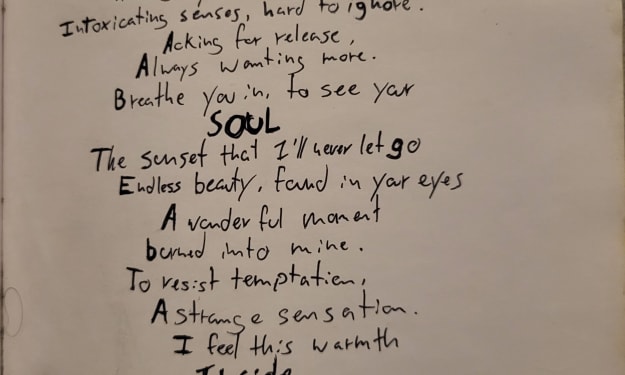 Intoxicating senses, hard to ignore.
Acking for release,
Always wanting more.
Breathe you in, to see your
SOUL
The sunset that I'll never let go
Endless beauty, found in your eyes
A wonderful moment
burned into mine.
To resist temptation,
A strange sensation.
I feel this warmth
Inside